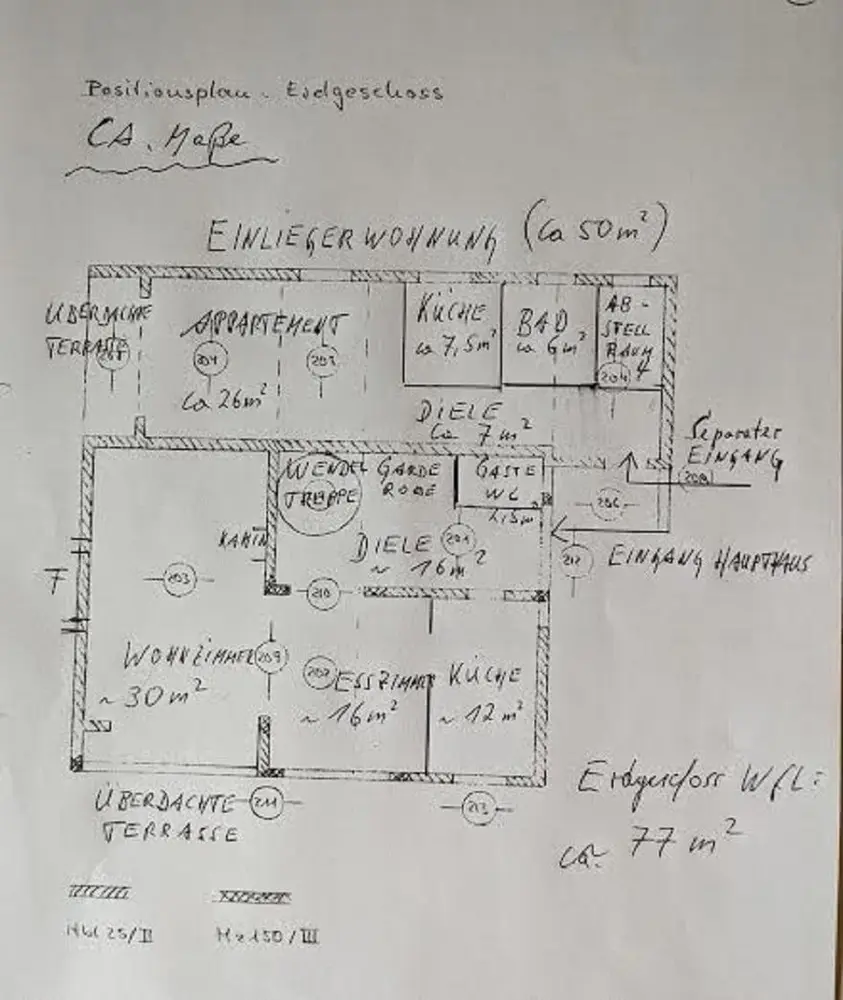 Positionsplan - Erdgeschoss
CA. Maße
EINLIEGERWOHNUNG (ca 50m²)
ÜBERDACHTE
TERRASSE
APPARTEMENT
ca 26m²
KÜCHE
ca 7,5m²
BAD
ca 6m²
AB-
STELL
RAUM
4
204
DIELE
ca 7m²
Separater
EINGANG
WENDEL
TREPPE
GARDE
ROBE
GÄSTE
WC
1,5m²
KAMIN
DIELE
~ 16m²
206
212
EINGANG HAUPTHAUS
F
203
210
WOHNZIMMER
~ 30m²
209
202
ESSZIMMER
~ 16m²
KÜCHE
~ 12m²
ÜBERDACHTE
TERRASSE
211
213
Erdgeschoss Wfl:
ca. 77 m²
Hbl 25/II
Hz 150/III